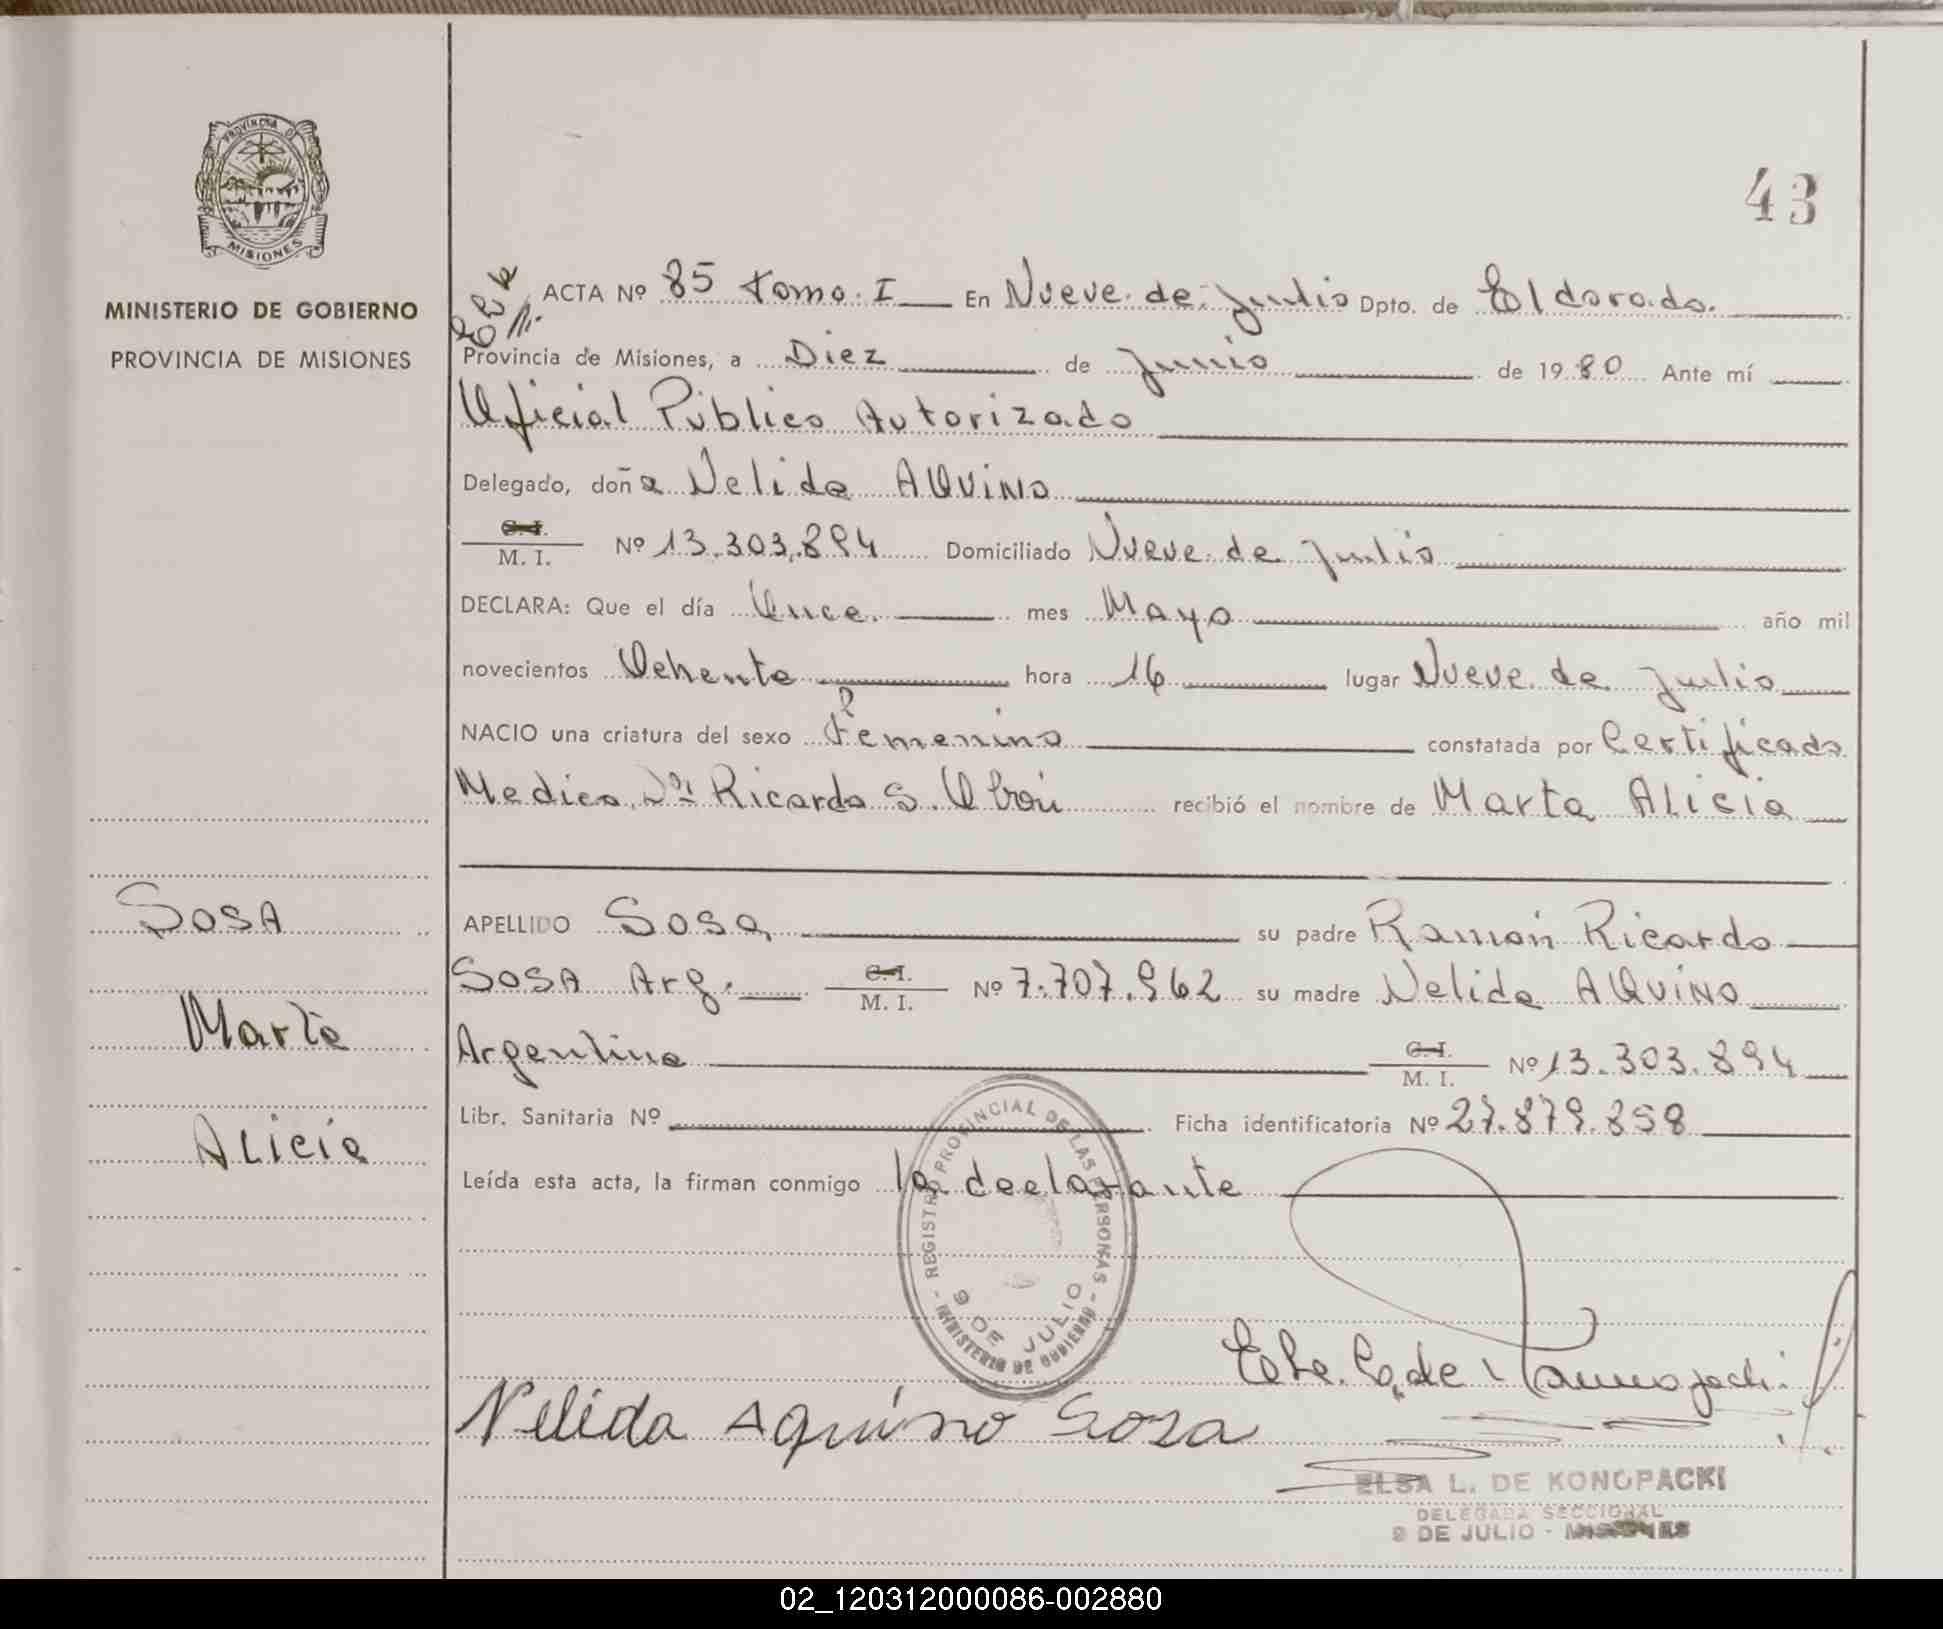 PROVINCIA DE
MISIONES
MINISTERIO DE GOBIERNO
PROVINCIA DE MISIONES
43
ACTA Nº 85 Tomo I En Nueve de Julio Dpto. de Eldorado.
Provincia de Misiones, a Diez de Junio de 1980 Ante mí
Oficial Público Autorizado
Delegado, doña Nelida AQuino
C. I.
M. I. Nº 13.303.894 Domiciliado Nueve de Julio
DECLARA: Que el día Once mes Mayo año mil
novecientos Ochenta hora 16 lugar Nueve de Julio
NACIO una criatura del sexo Femenino constatada por Certificado
Medico. Dr. Ricardo S. recibió el nombre de Marta Alicia
SOSA
APELLIDO Sosa su padre Ramón Ricardo
SOSA Arg. C. I. M. I. Nº 7.707.962 su madre Nelida AQuino
Marta
Argentina C. I. M. I. Nº 13.303.894
Libr. Sanitaria Nº Ficha identificatoria Nº 27.879.858
Alicia
Leída esta acta, la firman conmigo la declarante
REGISTRO PROVINCIAL DE LAS PERSONAS
9 DE JULIO
MINISTERIO DE GOBIERNO
Nelida Aquino Sosa
ELSA L. DE KONOPACKI
DELEGADA SECCIONAL
9 DE JULIO - MISIONES
02_120312000086-002880